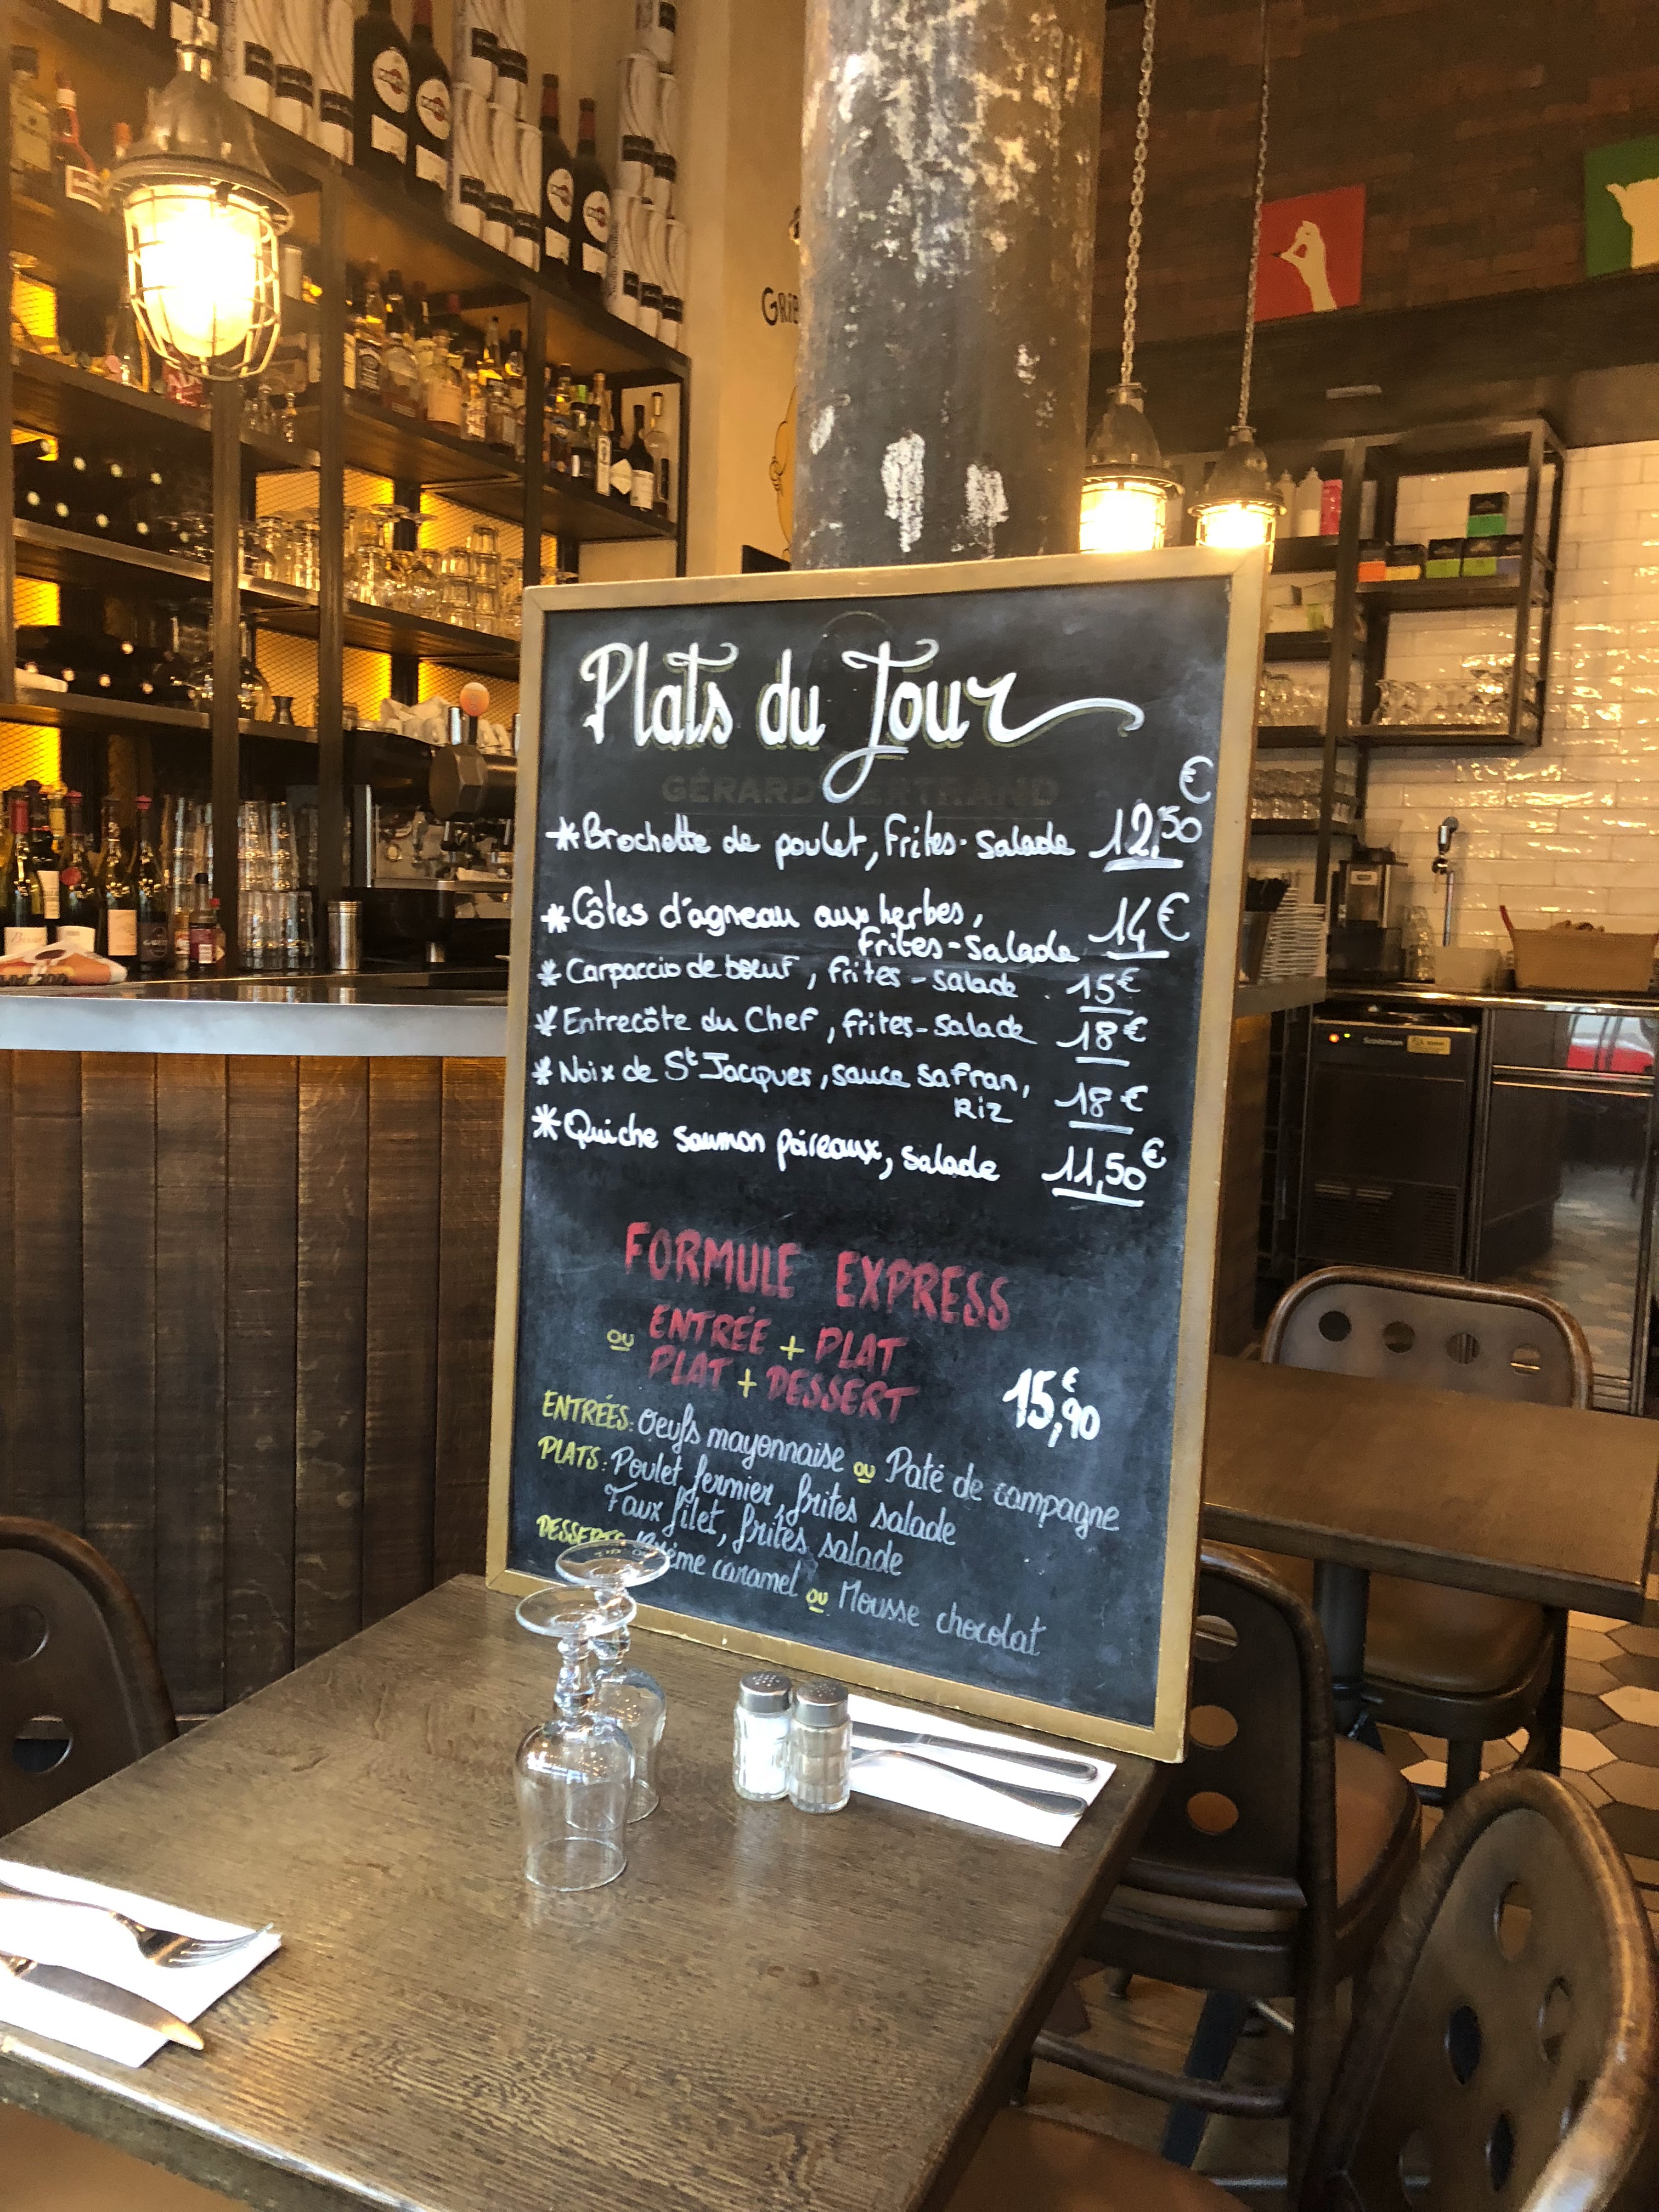 Plats du Jour
GÉRARD BERTRAND
* Brochette de poulet, frites-salade 12,50 €
* Côtes d'agneau aux herbes,
frites-salade 14€
* Carpaccio de bœuf, frites-salade 15€
* Entrecôte du Chef, frites-salade 18€
* Noix de St Jacques, sauce safran,
Riz 18€
* Quiche saumon poireaux, salade 11,50€
FORMULE EXPRESS
ENTRÉE + PLAT
ou PLAT + DESSERT
15,90 €
ENTRÉES: Oeufs mayonnaise ou Paté de campagne
PLATS: Poulet fermier, frites salade
Faux filet, frites salade
DESSERTS caramel ou Mousse chocolat
Scotsman